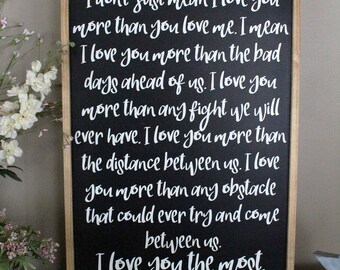 I don't just mean I love you
more than you love me. I mean
I love you more than the bad
days ahead of us. I love you
more than any fight we will
ever have. I love you more than
the distance between us. I love
you more than any obstacle
that could ever try and come
between us.
I love you the most.